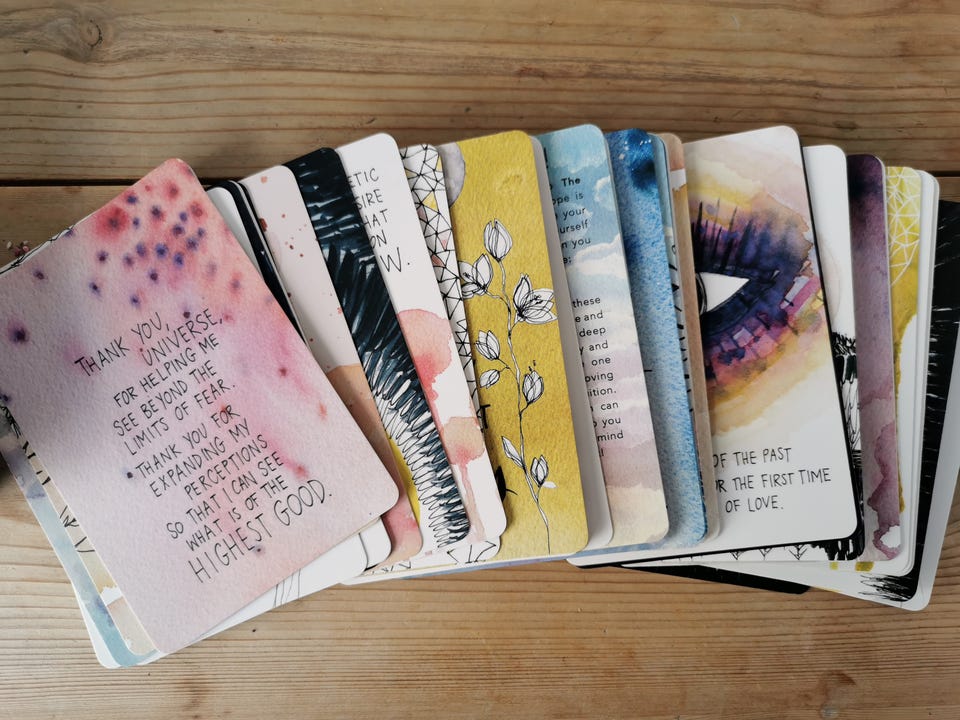 THANK YOU,
UNIVERSE,
FOR HELPING ME
SEE BEYOND THE
LIMITS OF FEAR.
THANK YOU FOR
EXPANDING MY
PERCEPTIONS
SO THAT I CAN SEE
WHAT IS OF THE
HIGHEST GOOD.
ETIC
SIRE
HAT
ON
W.
The
ope is
your
urself
n you
these
e and
deep
y and
one
oving
ition.
can
o you
mind
OF THE PAST
R THE FIRST TIME
OF LOVE.